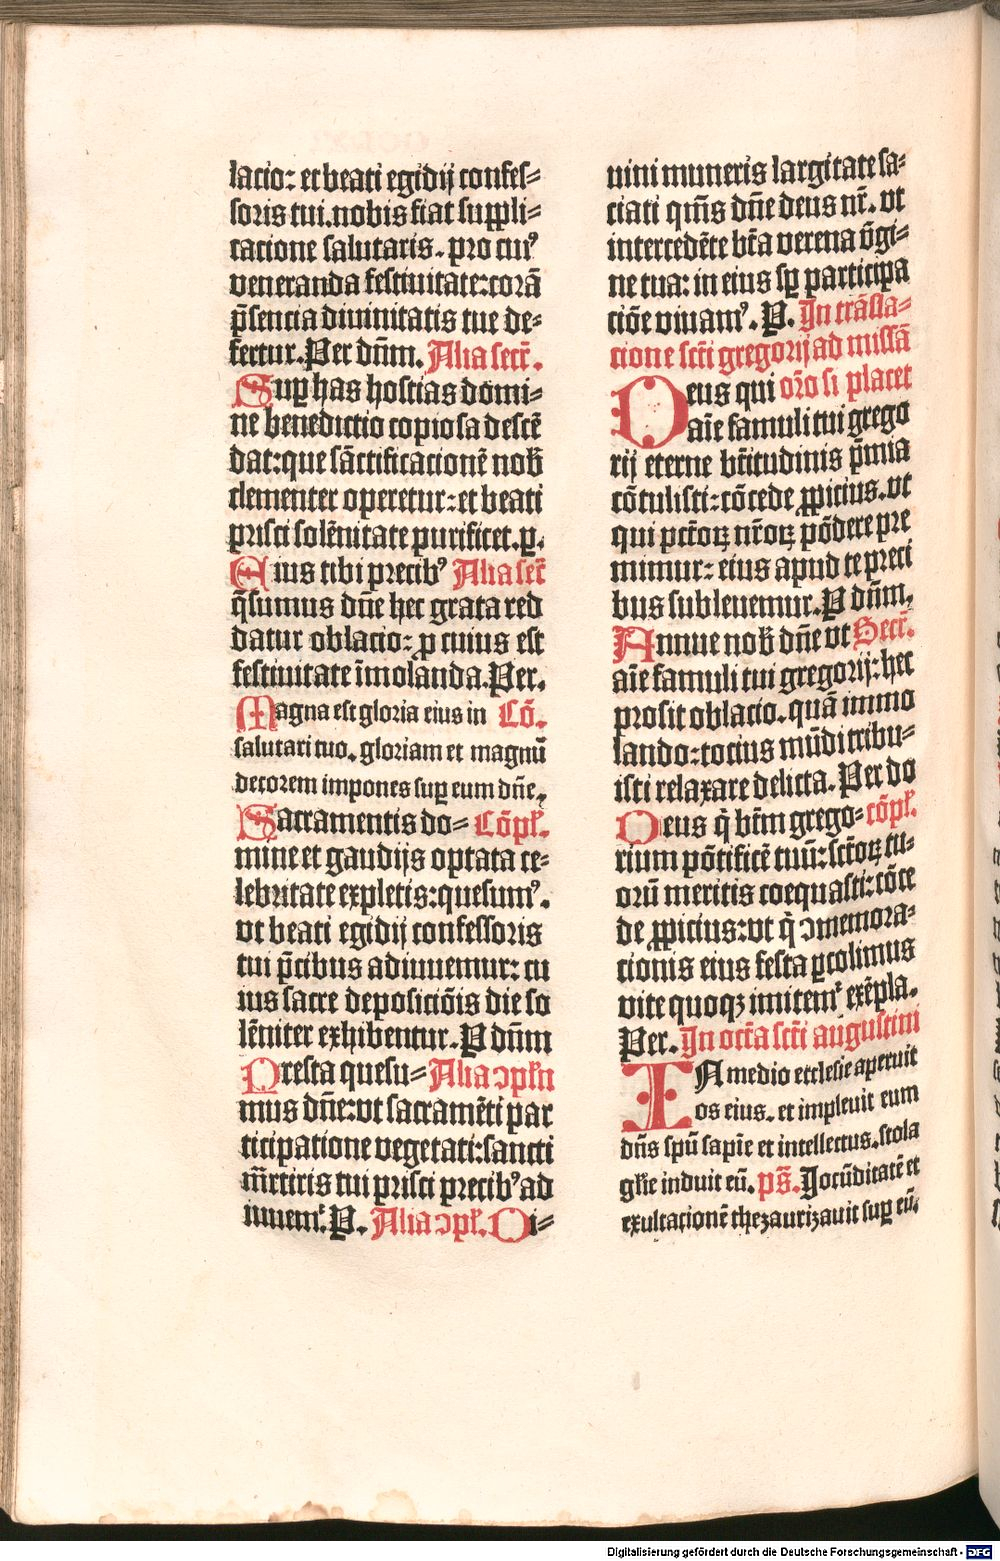 lacio: et beati egidij confes=
soris tui. nobis fiat suppli=
catione salutaris. pro cuiꝰ
veneranda festiuitate: corā
p̄sencia diuinitatis tue de=
fertur. Per dn̄m. Alia secr̄.
Suꝑ has hostias domi=
ne benedictio copiosa descē
dat: que sāctificacionē nob̄
clementer operetur: et beati
prisci solēnitate purificet. p.
Eius tibi precibꝰ Alia secr̄
q̄sumus dn̄e hec grata red
datur oblacio: ꝓ cuius est
festiuitate īmolanda. Per.
Magna est gloria eius in Cō.
salutari tuo. gloriam et magnū
decorem impones suꝑ eum dn̄e.
Sacramentis do= Cōpl̄.
mine et gaudijs optata ce=
lebritate expletis: quesumꝰ.
vt beati egidij confessoris
tui p̄cibus adiuuemur: cu
ius sacre deposiciōis die so
lēniter exhibentur. P dn̄m
Presta quesu= Alia ↄpl̄n
mus dn̄e: vt sacramēti par
ticipatione vegetati: sancti
m̄rtiris tui prisci precibꝰ ad
iuuemᷣ. P. Alia ↄpl̄. Di=
uini muneris largitate sa=
ciati qm̄s dn̄e deus nr̄. vt
intercedēte bt̄a verena v̄gi=
ne tua: in eius sꝑ participa
ciōe viuamꝰ. P. In trāsla=
cione sct̄i gregorij ad missā
Deus qui orō si placet
aīe famuli tui grego
rij eterne bt̄itudinis p̄mia
cōtulisti: cōcede ꝓpicius. vt
qui pct̄oꝝ nr̄oꝝ pōdere pre
mimur: eius apud te preci
bus subleuemur. P dn̄m.
Annue nob̄ dn̄e vt Secr̄.
aīe famuli tui gregorij: hec
prosit oblacio. quā immo
lando: tocius mūdi tribu=
isti relaxare delicta. Per do
Deus q̄ bt̄m grego= cōpl̄.
rium pōtificē tuū: sct̄oꝝ tu=
orū meritis coequasti: cōce
de ꝓpicius: vt q̄ ↄmemora=
cionis eius festa ꝑcolimus
vite quoqꝫ imitemᷣ exēpla.
Per. In oct̄a sct̄i augustini
IN medio ecclesie aperuit
os eius. et impleuit eum
dn̄s spū sapīe et intellectus. stola
gl̄ie induit eū. ps̄. Jocūditatē et
exultacionē thezaurizauit suꝑ eū.
Digitalisierung gefördert durch die Deutsche Forschungsgemeinschaft - DFG